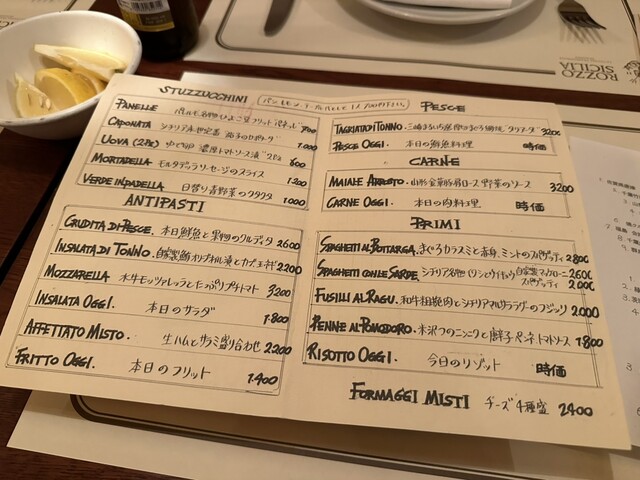 STUZZUCCHINI
PANELLE パレルモ名物ひよこ豆フリット パネッレ 700
CAPONATA シチリア州定番 茄子のカポナータ 1.000
UOVA (2PES) ゆで卵 濃厚トマトソース漬 600
MORTADELLA モルタデッラソーセージのスライス 1200
VERDE INPADELLA 日替り青野菜のクタクタ 1.000
ANTIPASTI
CRUDITA DI PESCE. 本日鮮魚と果物のクルディタ 2600
INSALATA DI TONNO. 自家製鮪オリーブオイル漬と 2200
MOZZARELLA 水牛モッツァレラとたっぷりプチトマト 3200
INSALATA OGGI. 本日のサラダ 1.800
AFFETTATO MISTO. 生ハムとサラミ盛り合わせ 2.200
FRITTO OGGI. 本日のフリット 1.400
PESCE
TAGLIATA DI TONNO. タリアータ 3200
PESCE OGGI. 本日の鮮魚料理 時価
CARNE
MAIALE ARROSTO. 山形金華豚肩ロース 野菜のソース 3200
CARNE OGGI. 本日の肉料理 時価
PRIMI
SPAGHETTI AL BOTTARGA. まぐろカラスミと赤身、ミントのスパゲッティ 2.800
SPAGHETTI CON LE SARDE. シチリア名物 イワシとウイキョウ 自家製マカロニ スパゲッティ 2600 2200
FUSILLI AL RAGU. 和牛粗挽肉とシチリアマルサララグーのフジッリ 2.000
PENNE AL POMODORO. ニンニクと唐辛子 ペンネ トマトソース 1.800
RISOTTO OGGI. 今日のリゾット 時価
FORMAGGI MISTI チーズ4種盛 2400
ROZZO
SICILIA